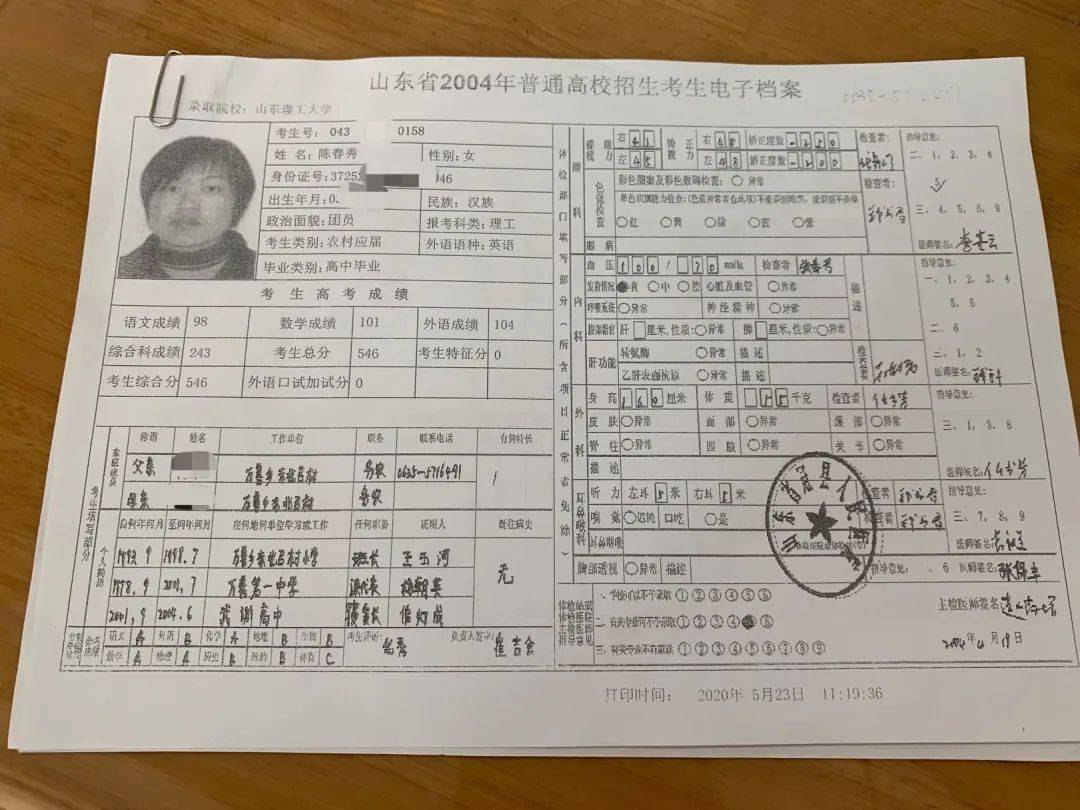 山东省2004年普通高校招生考生电子档案
录取院校：山东理工大学
考生号：043 0158
姓名：陈春秀 性别：女
身份证号：3725 46
出生年月：0 民族：汉族
政治面貌：团员 报考科类：理工
考生类别：农村应届 外语语种：英语
毕业类别：高中毕业
考生高考成绩
语文成绩 98 数学成绩 101 外语成绩 104
综合科成绩 243 考生总分 546 考生特征分 0
考生综合分 546 外语口试加试分 0
考生填写部分
家庭成员
称谓 姓名 工作单位 职务 联系电话 有何特长
父亲 务农 0635-5716491
母亲 务农
个人简历
自何年何月 至何年何月 在何地何单位学习或工作 任何职务 证明人 既往病史
1993.9 1998.7 班长 王玉河 无
1998.9 2001.7 万善第一中学
2001.9 2004.6 武训高中
语文 A 外语 B 化学 A 地理 B 生物 B 考生评语：
数学 A 物理 A 历史 B 政治 B 体育 C
体检部门填写部分（所含项目正常省免涂）
眼科
裸眼视力 右 4.3 矫正视力 右 4.8 矫正度数 -250 检查者：
左 4.5 左 4.8 矫正度数 -200
色觉检查
彩色图案及彩色数码检查：○异常 检查者：
单色识别能力检查：(色觉异常者查此项)
○红 ○黄 ○绿 ○蓝 ○紫
眼病
指导意见：
二、1、2、3、4
5
三、4、5、6、9
医师签名：
内科
血压 100 / 70 mmHg 检查者
发育情况 良 ○中 ○差 心脏及血管 ○异常
呼吸系统 ○异常 神经精神 ○异常
腹部器官 肝 厘米,性质:○异常 脾 厘米,性质:○异常
肝功能 转氨酶 ○异常 描述
乙肝表面抗原 ○异常 描述
描述
检查者
指导意见：
一、1、2、3、4
5、6
二、6
三、1、2
医师签名：
外科
身高 160 厘米 体重 55 千克 检查者
皮肤 ○异常 面部 ○异常 颈部 ○异常
脊柱 ○异常 四肢 ○异常 关节 ○异常
描述
指导意见：
三、1、3、8
医师签名：
耳鼻喉科
听力 左耳 5 米 右耳 5 米 检查者
嗅觉 ○迟钝 口吃 ○是 检查者
耳鼻咽喉
指导意见：
三、7、8、9
医师签名：
胸部透视 ○异常 描述 指导意见： 、6 医师签名：
山东省冠县人民医院
体检站或体检医院主检医师指导意见
一、学校可以不予录取 ①②③④⑤⑥
二、有关专业可不予录取 ①②③④ ⑥
三、有关专业不宜就读 ①②③④⑤⑥⑦⑧⑨
主检医师签名
打印时间： 2020年 5月23日 11:19:36